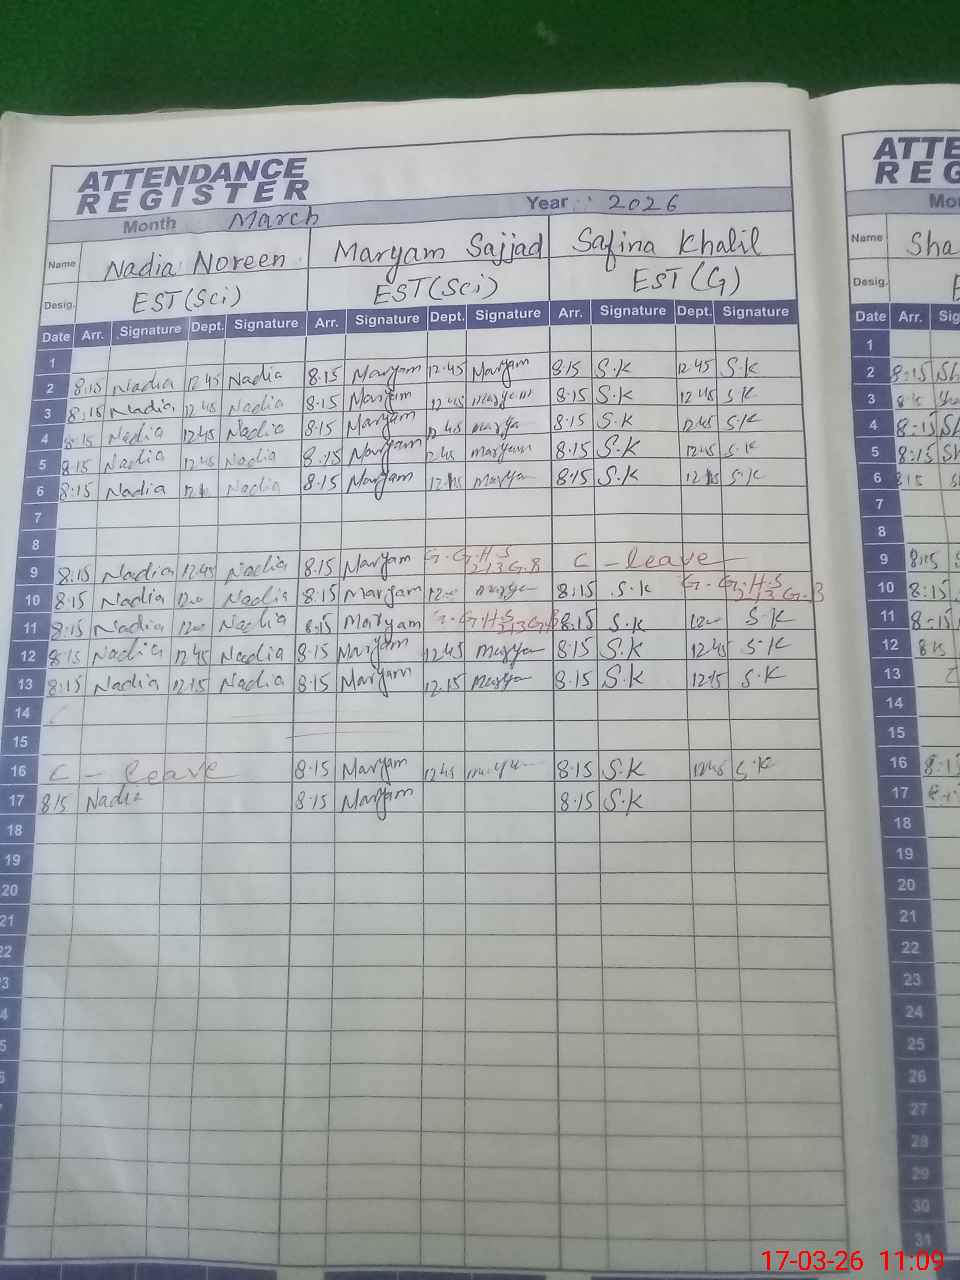 ATTENDANCE
REGISTER
Month March Year 2026
Name Nadia Noreen Maryam Sajjad Safina Khalil
Desig. EST(Sci) EST(Sci) EST(G)
Date Arr. Signature Dept. Signature Arr. Signature Dept. Signature Arr. Signature Dept. Signature
1
2 8:15 Nadia 12 45 Nadia 8:15 Maryam 12:45 Maryam 8:15 S.K 12 45 S.K
3 8:15 Nadia 12 45 Nadia 8:15 Maryam 12 45 Maryam 8:15 S.K 12 45 S.K
4 8:15 Nadia 12 45 Nadia 8:15 Maryam 12 45 8:15 S.K 12 45 S.K
5 8:15 Nadia 12 45 Nadia 8:15 Maryam 12 45 Maryam 8:15 S.K 12 45 S.K
6 8:15 Nadia Nadia 8:15 Maryam 8:15 S.K S.K
7
8
9 8:15 Nadia 12 45 Nadia 8:15 Maryam G.G.H.S 213 G.B C - leave
10 8:15 Nadia Nadia 8:15 Maryam 8:15 S.K G.G.H.S 213 G.B
11 8:15 Nadia Nadia 8:15 Maryam G.G.H.S 213 G.B 8:15 S.K S.K
12 8:15 Nadia 12 45 Nadia 8:15 Maryam 12 45 8:15 S.K 12 45 S.K
13 8:15 Nadia 12 15 Nadia 8:15 Maryam 12 15 8:15 S.K 12 15 S.K
14
15
16 C - leave 8:15 Maryam 12 45 8:15 S.K 12 45 S.K
17 8 15 Nadia 8:15 Maryam 8:15 S.K
18
19
20
21
22
23
24
25
ATTE
REG
Mo
Name Sha
Desig. E
Date Arr. Sig
1
2 8:15 Sh
3
4 8:15 Sh
5 8:15 Sh
6
7
8
9 8:15
10 8:15
11 8:15
12 8:15
13
14
15
16
17
18
19
20
21
22
23
24
25
26
27
28
29
30
31
17-03-26 11:09